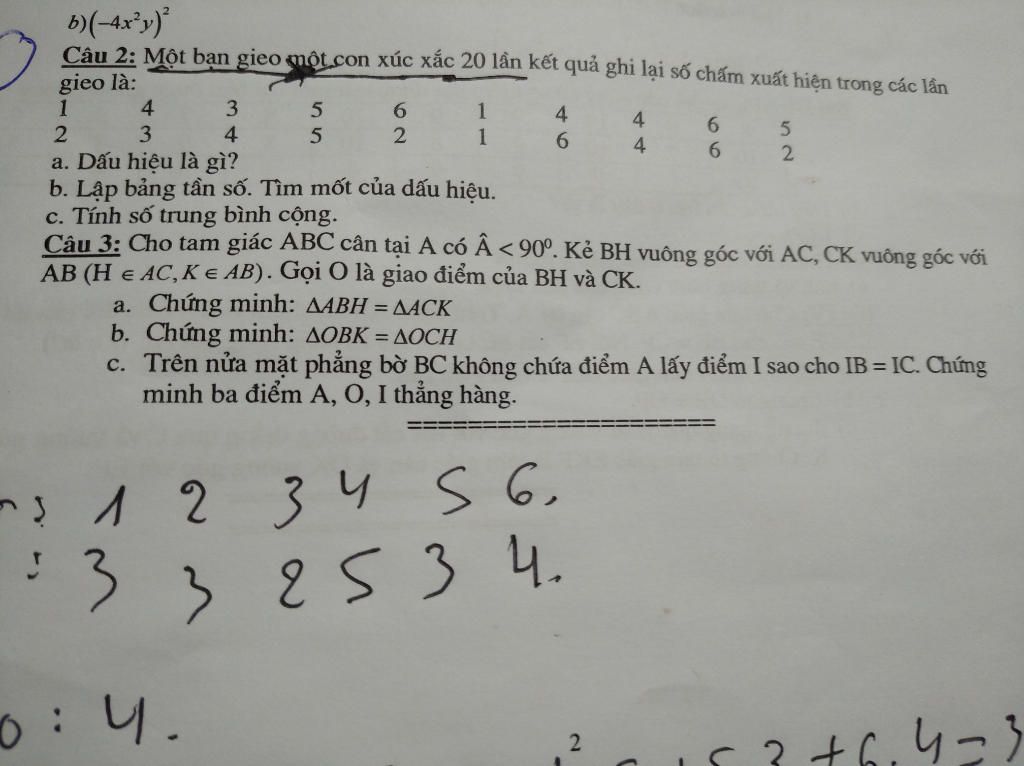 b) (−4x²y)²
Câu 2: Một bạn gieo một con xúc xắc 20 lần kết quả ghi lại số chấm xuất hiện trong các lần
gieo là:
1 4 3 5 6 1 4 4 6 5
2 3 4 5 2 1 6 4 6 2
a. Dấu hiệu là gì?
b. Lập bảng tần số. Tìm mốt của dấu hiệu.
c. Tính số trung bình cộng.
Câu 3: Cho tam giác ABC cân tại A có Â < 90⁰. Kẻ BH vuông góc với AC, CK vuông góc với
AB (H ∈ AC, K ∈ AB). Gọi O là giao điểm của BH và CK.
a. Chứng minh: ΔABH = ΔACK
b. Chứng minh: ΔOBK = ΔOCH
c. Trên nửa mặt phẳng bờ BC không chứa điểm A lấy điểm I sao cho IB = IC. Chứng
minh ba điểm A, O, I thẳng hàng.
=====================
1 2 3 4 5 6.
: 3 3 2 5 3 4.
: 4.
2 + 6. 4 = 3